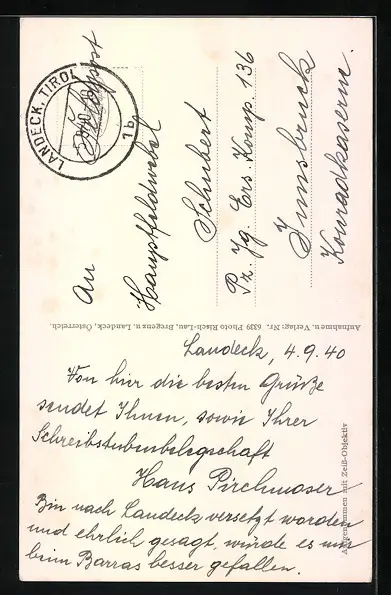 LANDECK, TIROL
1b
Feldpost
An
Hauptfeldwebel
Schubert
Pz. Jg. Ers. Komp. 136
Innsbruck
Konradkaserne.
Aufnahme u. Verlag: Nr. 6339 Photo Risch-Lau, Bregenz u. Landeck, Österreich.
Aufgenommen mit Zeiß-Objektiv
Landeck, 4.9.40
Von hier die besten Grüße
sendet Ihnen, sowie Ihrer
Schreibstubenbelegschaft
Hans Pirchmoser
Bin nach Landeck versetzt worden
und ehrlich gesagt, würde es mir
beim Barras besser gefallen.